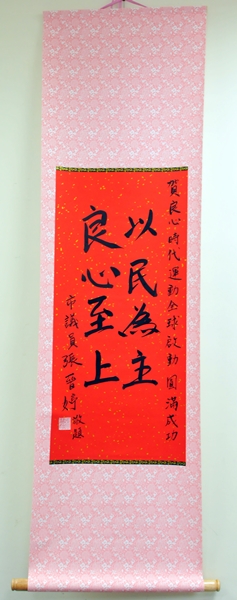 賀良心時代運動全球啟動圓滿成功
以民為主
良心至上
市議員張晉婷敬題